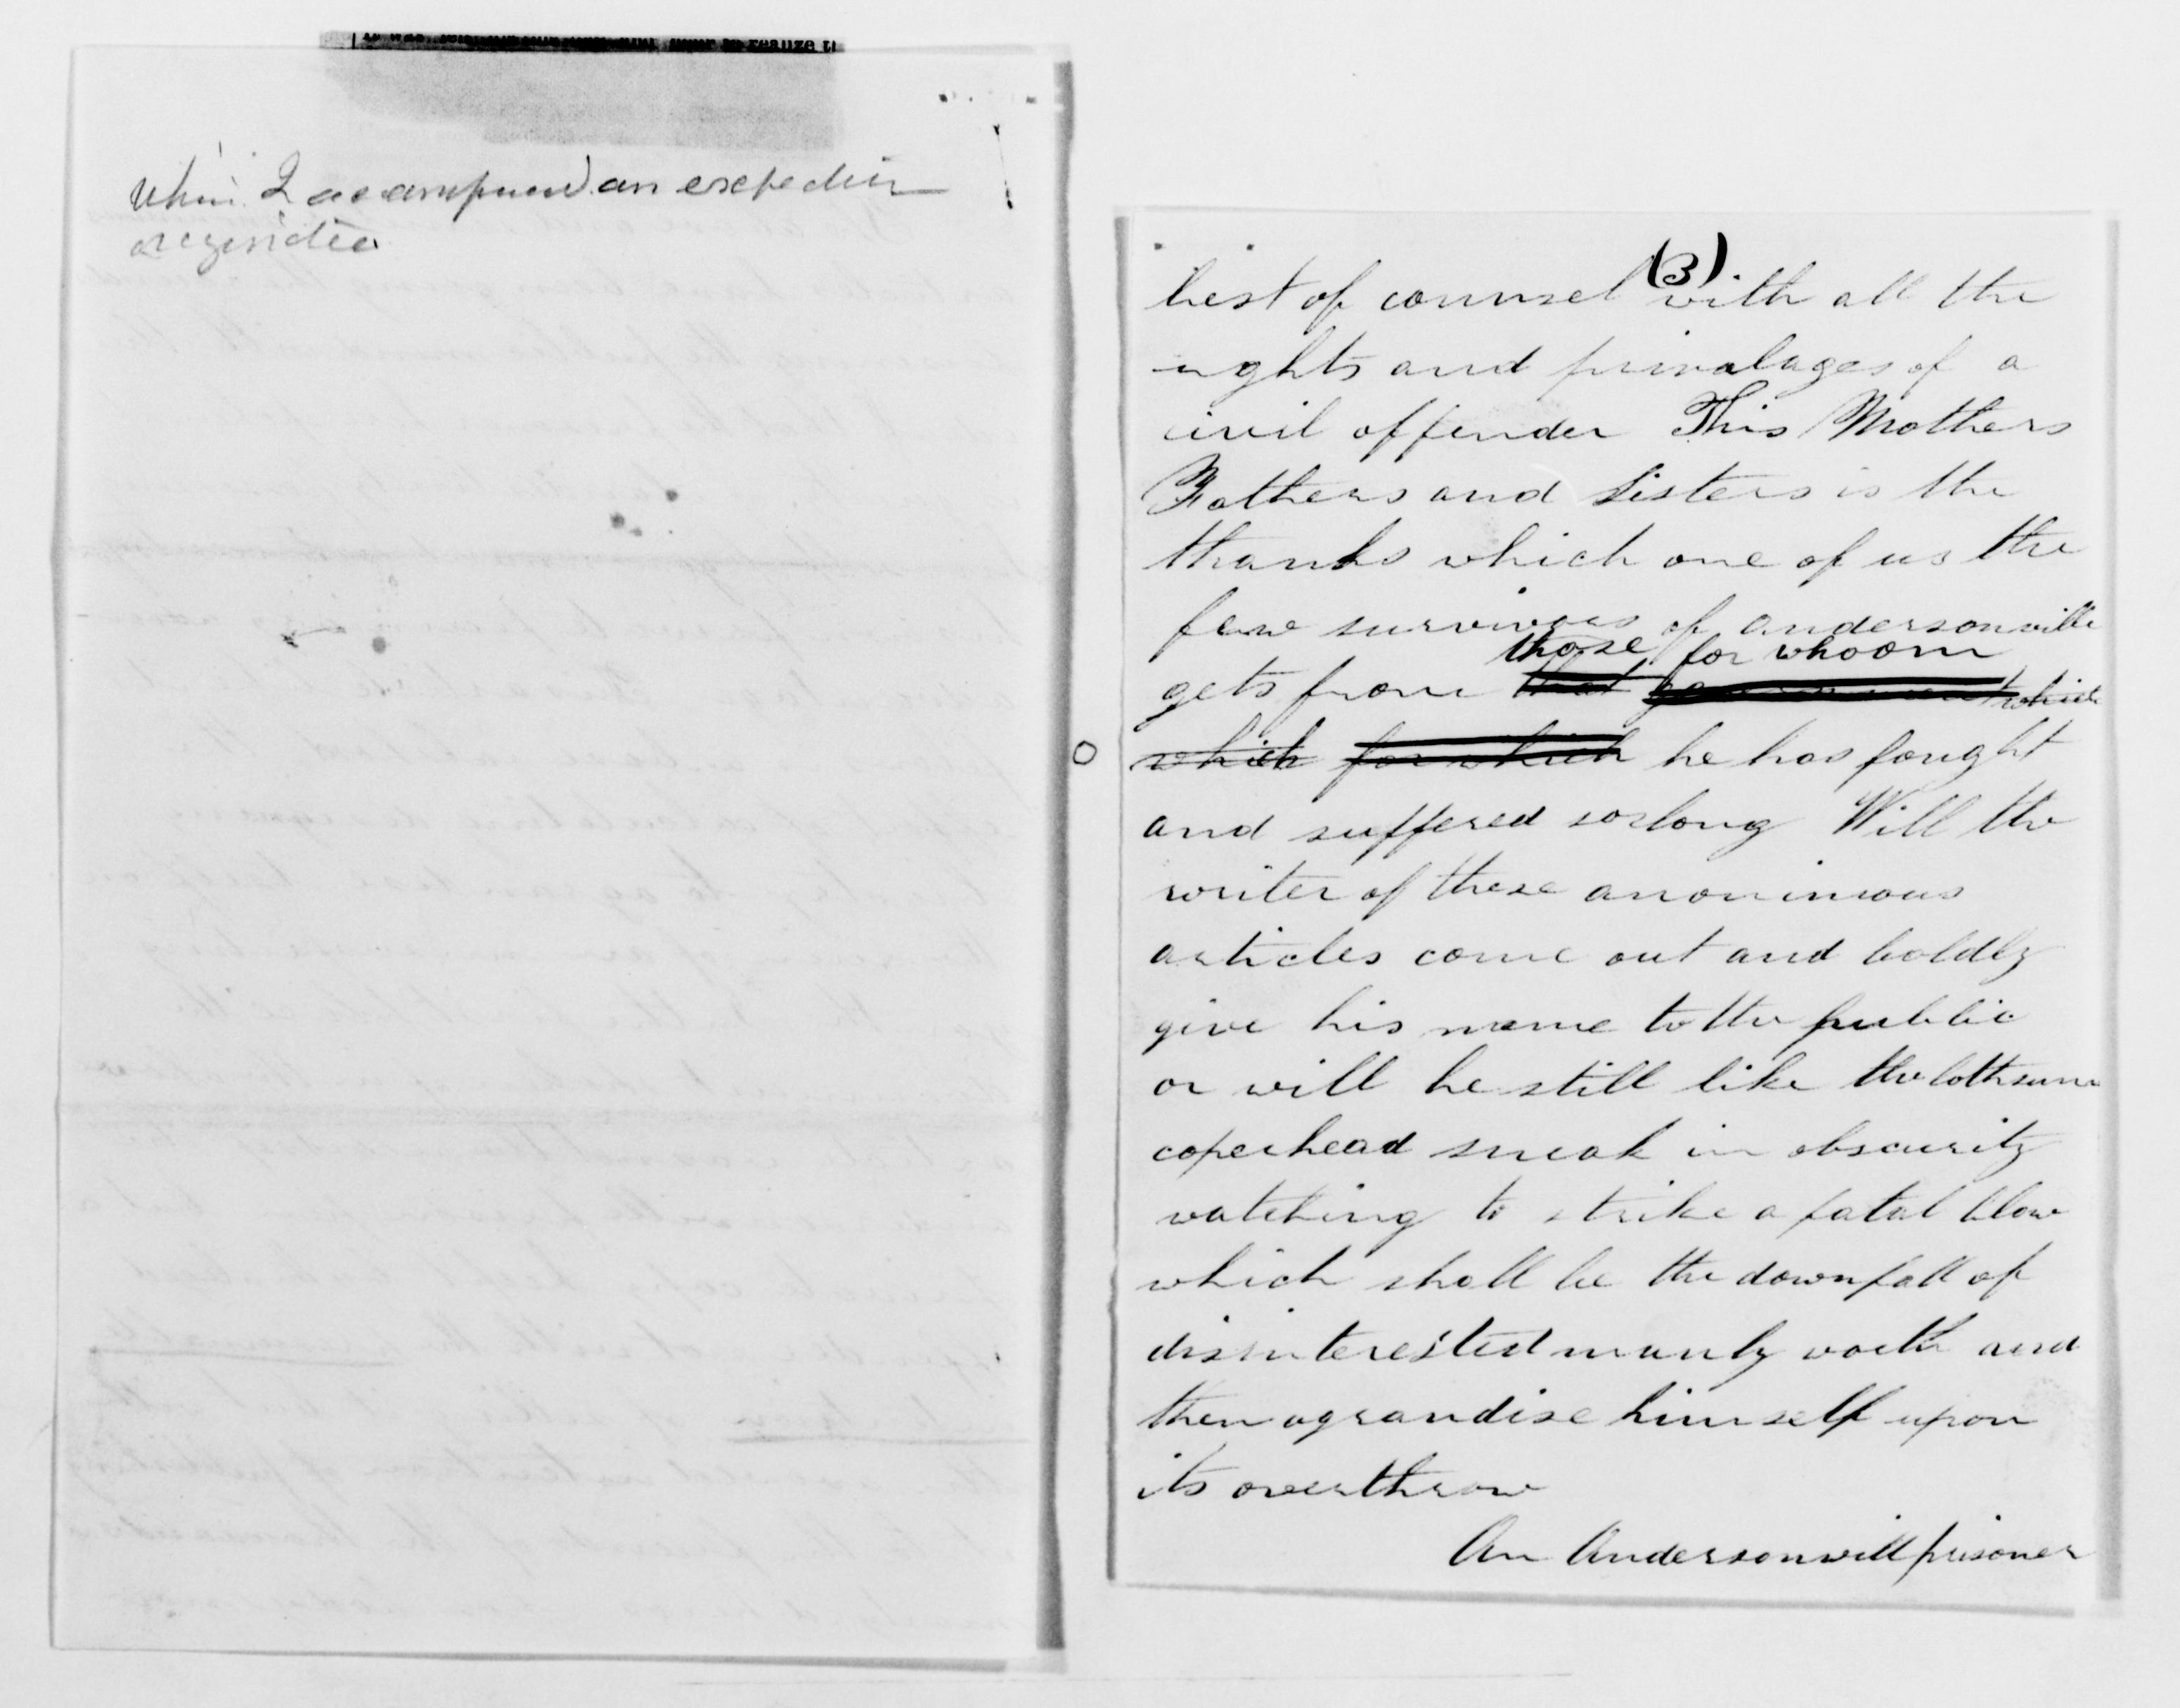 When I accompanied an expedition
(3).
best of counsel with all the
rights and privalages of a
civil offender This Mothers
Fathers and Sisters is the
thanks which one of us the
few survivors of andersonville
those for whoom
gets from that government which
which for which he has fought
and suffered so long Will the
writer of these anonimous
articles come out and boldly
give his name to the public
or will he still like the lothsume
coperhead sneak in obscurity
watching to strike a fatal blow
which shall be the downfall of
disinterested manly worth and
then agrandise himself upon
its overthrow
An Andersonvill prisoner